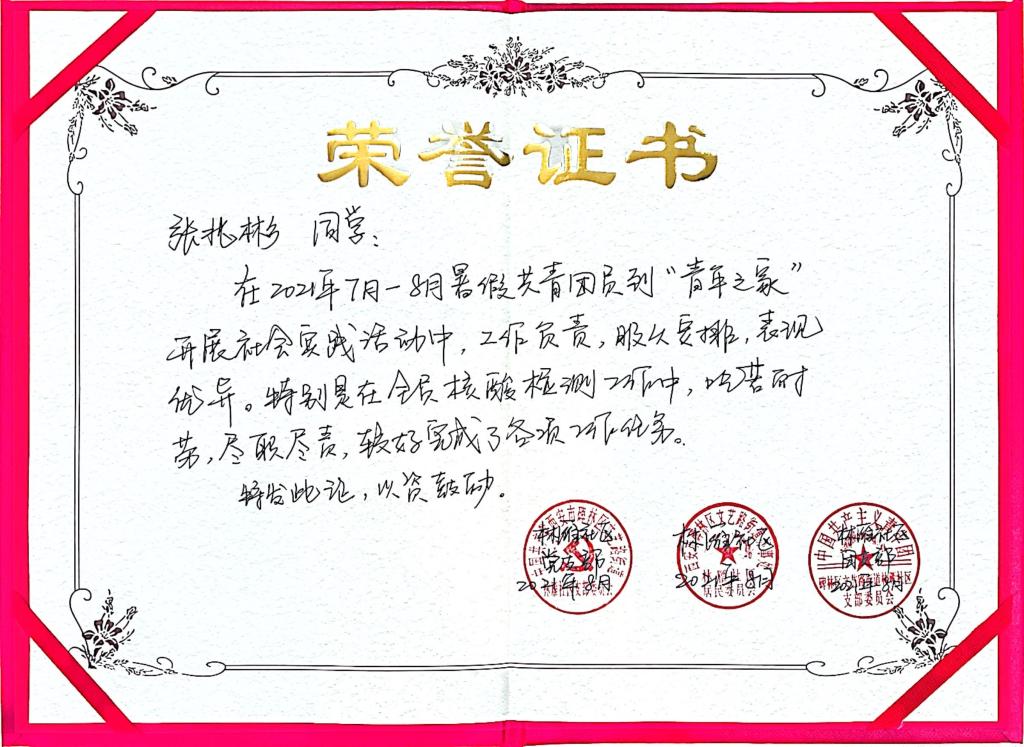 荣誉证书
张兆彬 同学：
在2021年7月－8月暑假共青团员到“青年之家”
开展社会实践活动中，工作负责，服从安排，表现
优异。特别是在全员核酸检测工作中，吃苦耐
劳，尽职尽责，较好完成了各项工作任务。
特发此证，以资鼓励。
社区 社区 社区
党支部 团支部
2021年8月 2021年8月 2021年8月
中国共产主义青年团
支部委员会